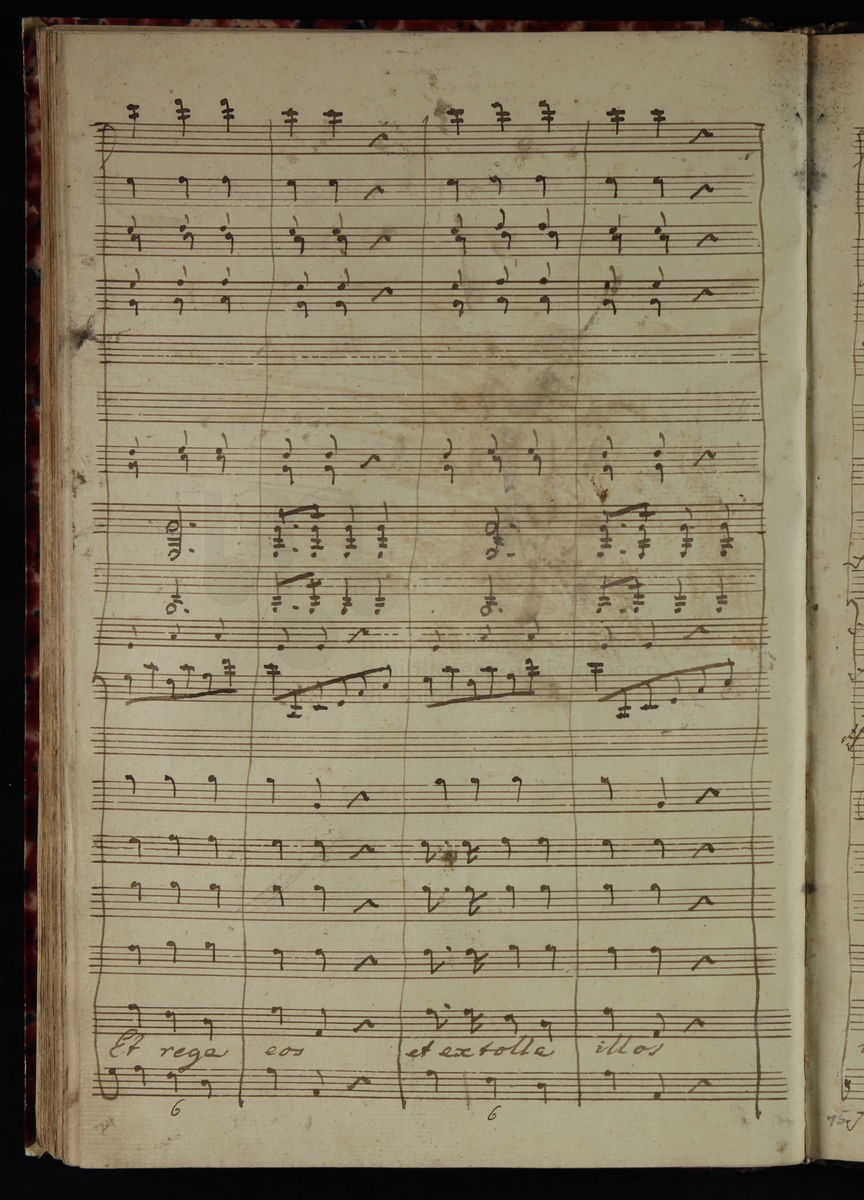 Et rege eos et extolle illos
6 6